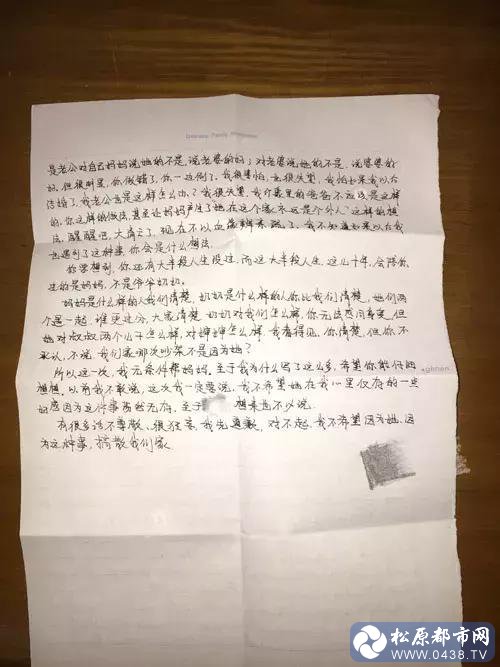 是老公对自己妈妈说她的不是,说老婆的好;对老婆说她的不是,说婆婆的
好,但很明显,你做错了,你一边倒了。我很害怕,也很失望,我怕如果我以后
结婚了,我老公也是这样怎么办?我很失望,我印象里的爸爸不应该是这样
的,你这样的做法,甚至让妈妈产生了她在这个家永远是个外人,这样的想
法,醒醒吧,大清亡了,现在不以血缘辨亲疏了。我不知道如果以后我
也遇到了这种事,你会是什么想法。
你要想到,你还有大半段人生没过,而这大半段人生,这几十年,会陪你
过的是妈妈,不是爷爷奶奶。
妈妈是什么样的人我们清楚,奶奶是什么样的人你比我们清楚,她们两
个遇一起,谁更过分,大家清楚,奶奶对我们怎么样,你无法感同身受,但
她对叔叔两个儿子怎么样,对婶婶怎么样,我看得见,你清楚,但你不
承认,不说,我们家哪次吵架不是因为她?
所以这一次,我无条件帮妈妈。至于我为什么写了这么多,希望你能仔细
想想。以前我不敢说,这次我一定要说,我不希望她在我心里仅有的一点
好感因为这件事荡然无存,至于 想来也不必说。
有很多话不尊敬、很狂妄,我先道歉,对不起,我不希望因为她,因
为这种事,搞散我们家
松原都市网
www.0438.TV